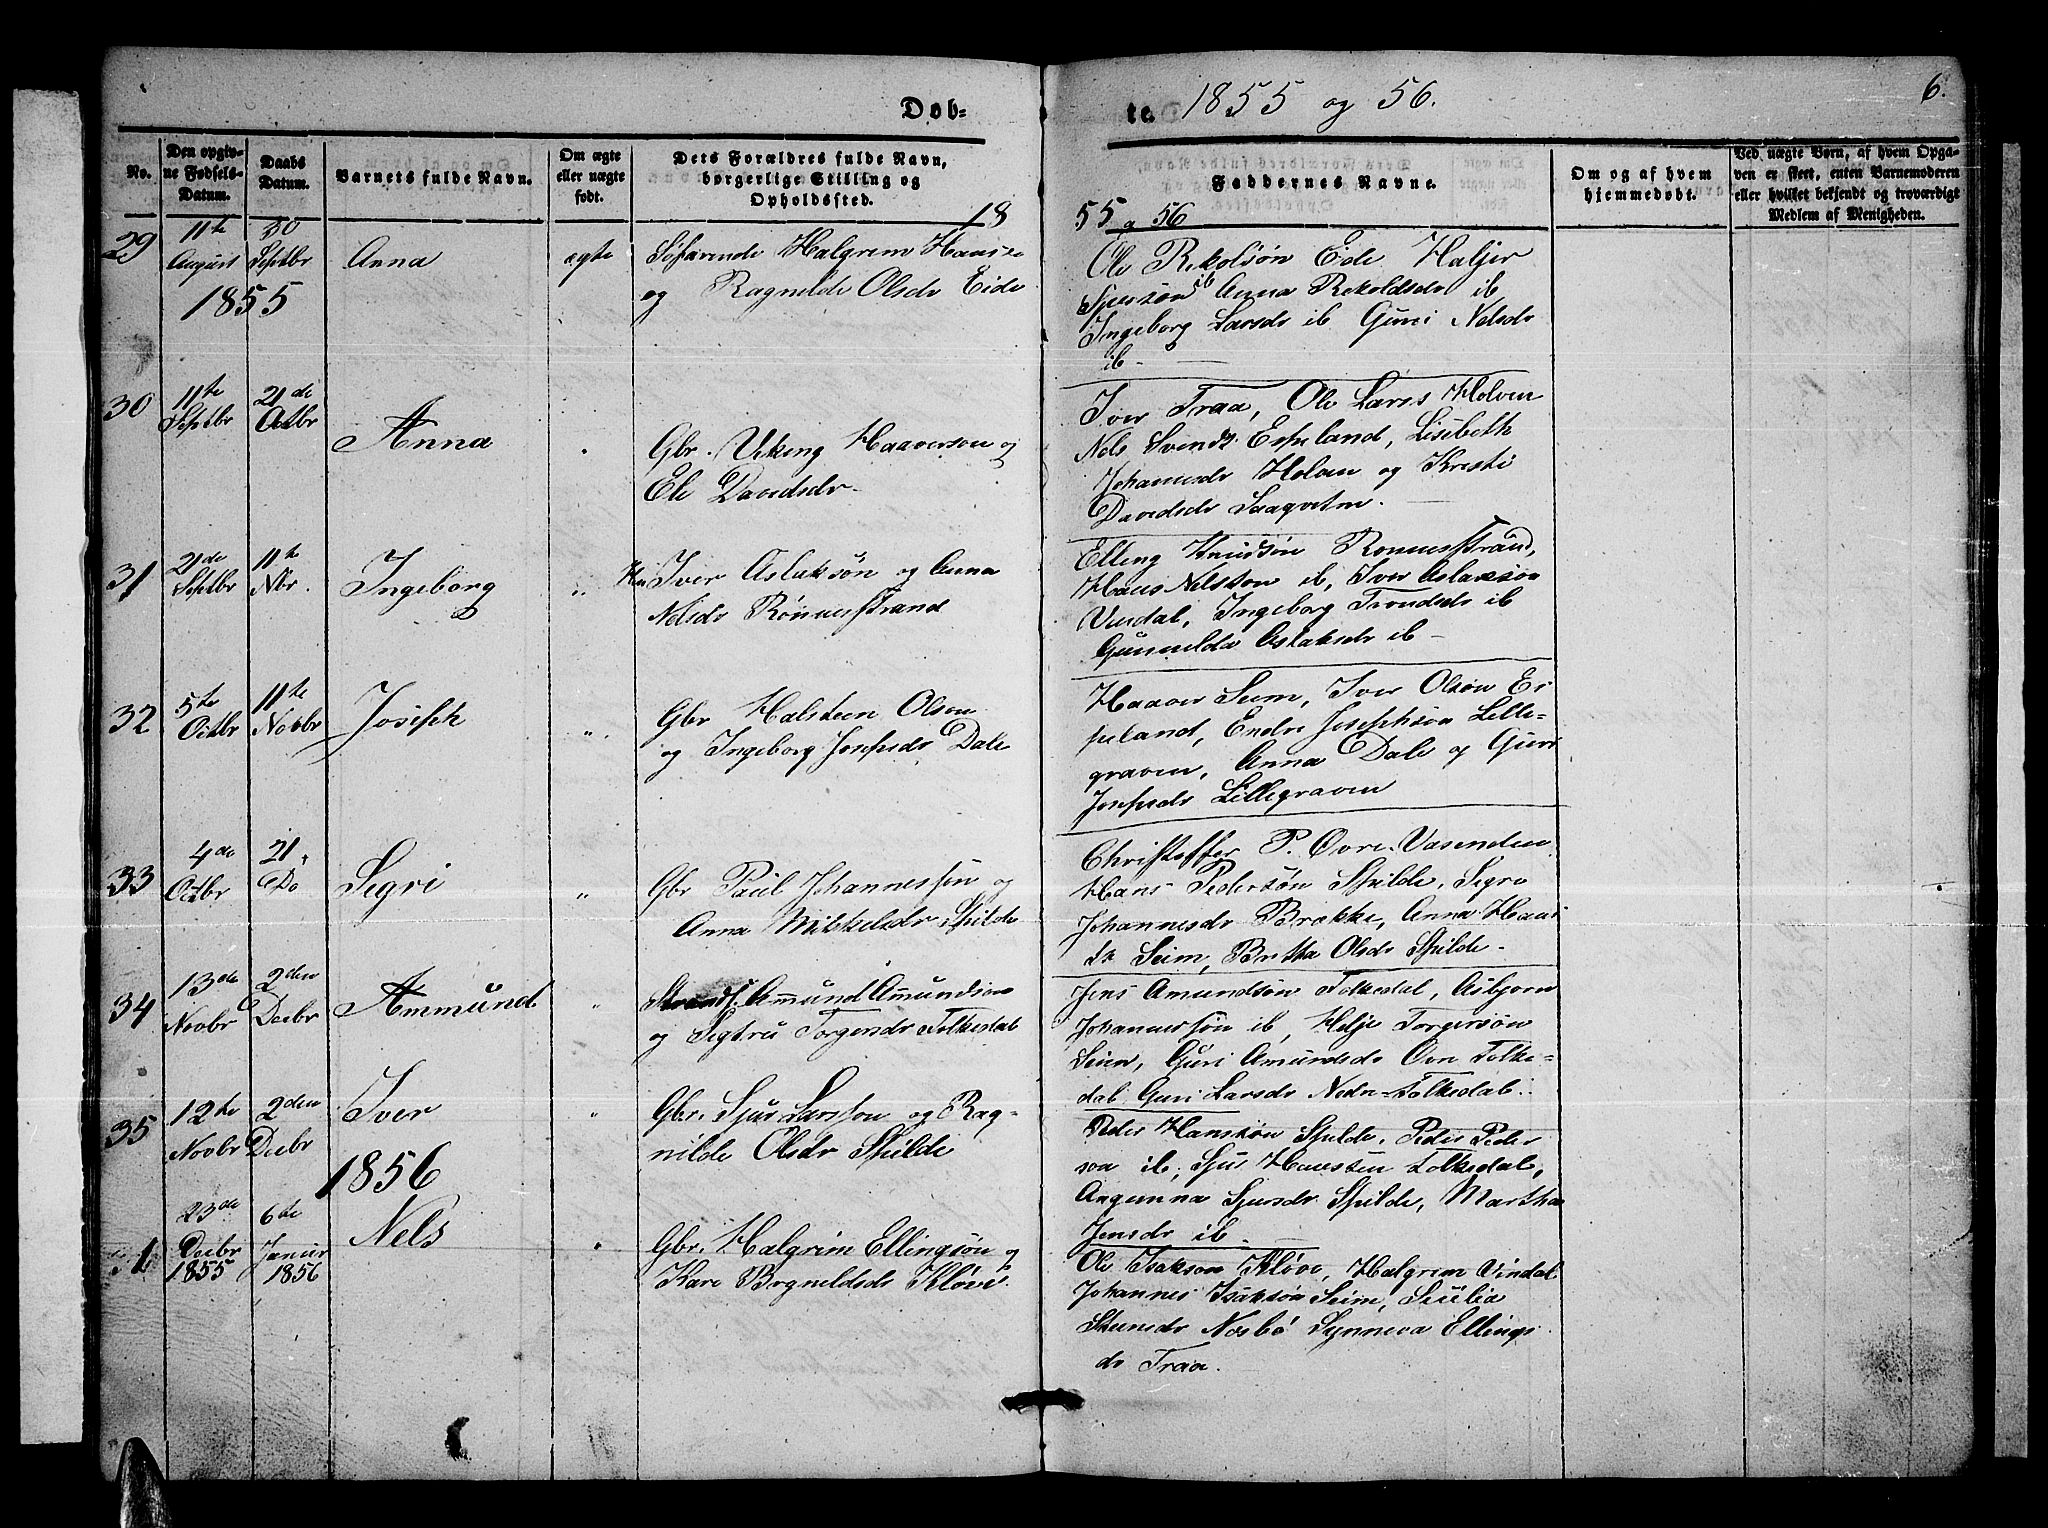 Døb-
te. 1855 og 56.
6.
No.
Den opgiv-
ne Fødsels-
Datum.
Daabs
Datum.
Barnets fulde Navn.
Om ægte
eller uægte
født.
Dets Forældres fulde Navn,
borgerlige Stilling og
Opholdssted.
Faddernes Navne.
Om og af hvem
hjemmedøbt.
Ved uægte Børn, af hvem Opga-
ven er skeet, enten Barnemoderen
eller hvilket bekjendt og troværdigt
Medlem af Menigheden.
18
55 og 56
29
11te
August
1855
30
Septbr
Anna
ægte
Søfarende Halgrim Hansen
og Ragnilde Olsdr Eide
Ole Rekolsøn Eide Haljer
Sjursøn ib Anna Rekoldsdr ib
Ingeborg Larsdr ib Guri Nelsdr
ib
30
11te
Septbr
21de
Octbr
Anna
Gbr. Viking Haaversøn og
Eli Davidsdr
Iver Traa, Ole Larss Holven
Nels Svends. Espeland, Lisebeth
Johannesdr Holven og Kristi
Davidsdr Saaqvitne.
31
21de
Septbr
11te
Nbr.
Ingeborg
"
Hm Iver Aslaksøn og Anna
Nelsdr Rønnestrand
Elling Knudsøn Ronnestrand,
Hans Nelssøn ib, Iver Aslaksøn
Vindal, Ingeborg Trondsdr ib
Gunnilda Aslaksdr ib
32
5te
Octbr
11te
Novbr
Joseph
"
Gbr Halsteen Olson
og Ingeborg Josepsdr Dale
Haaver Seim, Iver Olsøn Es
peland, Endre Josephsøn Lille-
graven, Anna Dale og Guri
Josepsdr Lillegraven
33
4de
Octbr
21
Do
Segri
"
Gbr Paul Johannessøn og
Anna Mikkelsdr Spilde
Christoffer P. Øvre-Vasenden
Hans Pedersøn Spilde, Segro
Johannesdr Brække, Anna Hans
dr Seim, Britha Olsdr Spilde
34
13de
Novbr
2den
Decbr
Ammund
"
Strands. Amund Amundsøn
og Sigtru Torgersdr Folkedal
Jens Amundsøn Folkedal, Asbjorn
Johannessøn ib, Helje Torgersøn
Seim, Guri Amundsdr Øvr Folke-
dal Guri Larsdr Nedr-Folkedal.
35
12te
Novbr
2den
Decbr
Iver
"
Gbr. Sjur Larssøn og Rag-
nilde Olsdr Spilde
Peder Hanssøn Spilde, Peder Peder
søn ib, Sju Hanssøn Folkedal,
Angunna Sjursdr Spilde, Martha
Jensdr ib
1856
1
23de
Decbr
1855
6te
Januar
1856
Nels
Gbr. Halgrim Ellingsøn og
Kari Bogneldsdr Kløve
Ole Isaksøn Kløve, Halgrim Vindal
Johannes Isaksøn Seim, Siulia
Steensdr Nosbø Synneva Ellings
dr Traa.